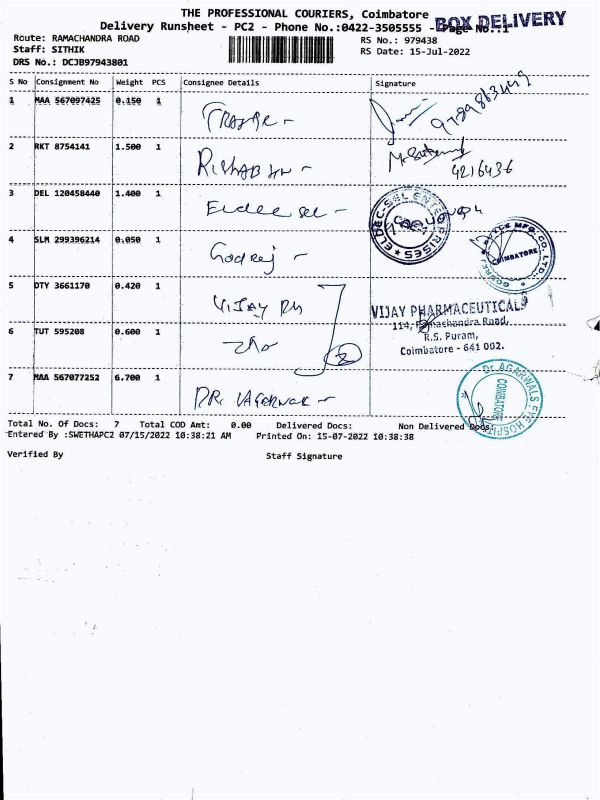 THE PROFESSIONAL COURIERS, Coimbatore
Delivery Runsheet - PC2 - Phone No.:0422-3505555 - Page No.:1
BOX DELIVERY
Route: RAMACHANDRA ROAD
RS No.: 979438
Staff: SITHIK
RS Date: 15-Jul-2022
DRS No.: DCJB97943801
S No Consignment No Weight PCS Consignee Details Signature
1 MAA 567097425 0.150 1
9789863449
2 RKT 8754141 1.500 1
4216436
3 DEL 120458440 1.400 1
ELDEC-SEL ENTERPRISES
4 SLM 299396214 0.050 1 Godrej -
GODREJ & BOYCE MFG. CO. LTD.
COIMBATORE
5 DTY 3661170 0.420 1 Vijay Ph
VIJAY PHARMACEUTICALS
114, Ramachandra Road,
R.S. Puram,
Coimbatore - 641 002.
6 TUT 595208 0.600 1
2
7 MAA 567077252 6.700 1 DR. AGARWAL -
Dr. AGARWALS EYE HOSPITAL
COIMBATORE
Total No. Of Docs: 7 Total COD Amt: 0.00 Delivered Docs: Non Delivered Docs:
Entered By :SWETHAPC2 07/15/2022 10:38:21 AM Printed On: 15-07-2022 10:38:38
Verified By Staff Signature